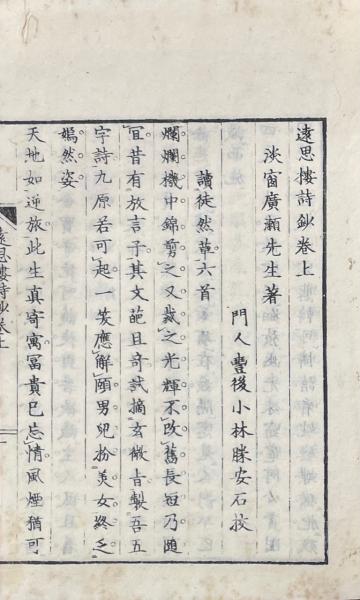 遠思樓詩鈔卷上
淡窗廣瀨先生著
門人 豐後小林勝安石校
讀徒然草六首
爛爛機中錦剪之又裁之光輝不改舊長短乃隨
宜昔有放言子其文葩且奇試摘玄微旨製吾五
字詩九原若可起一笑應解頤男兒扮美女終乏
嫣然姿
天地如逆旅此生真寄寓冨貴已忘情風煙猶可
遠思樓詩鈔卷上